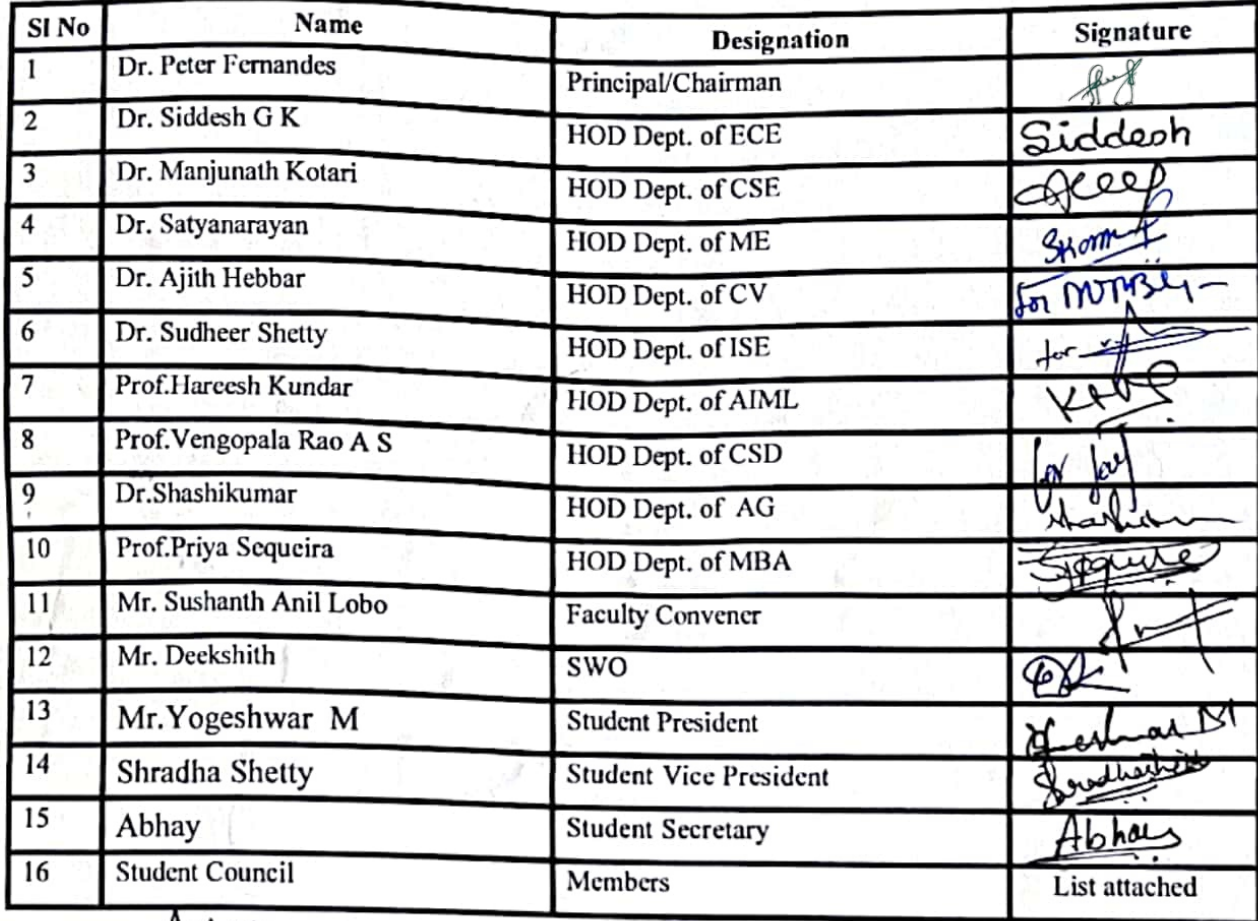 Sl No Name Designation Signature
1 Dr. Peter Fernandes Principal/Chairman
2 Dr. Siddesh G K HOD Dept. of ECE Siddesh
3 Dr. Manjunath Kotari HOD Dept. of CSE
4 Dr. Satyanarayan HOD Dept. of ME
5 Dr. Ajith Hebbar HOD Dept. of CV for
6 Dr. Sudheer Shetty HOD Dept. of ISE for
7 Prof.Hareesh Kundar HOD Dept. of AIML
8 Prof.Vengopala Rao A S HOD Dept. of CSD for
9 Dr.Shashikumar HOD Dept. of AG
10 Prof.Priya Sequeira HOD Dept. of MBA
11 Mr. Sushanth Anil Lobo Faculty Convener
12 Mr. Deekshith SWO
13 Mr.Yogeshwar M Student President
14 Shradha Shetty Student Vice President
15 Abhay Student Secretary Abhay
16 Student Council Members List attached